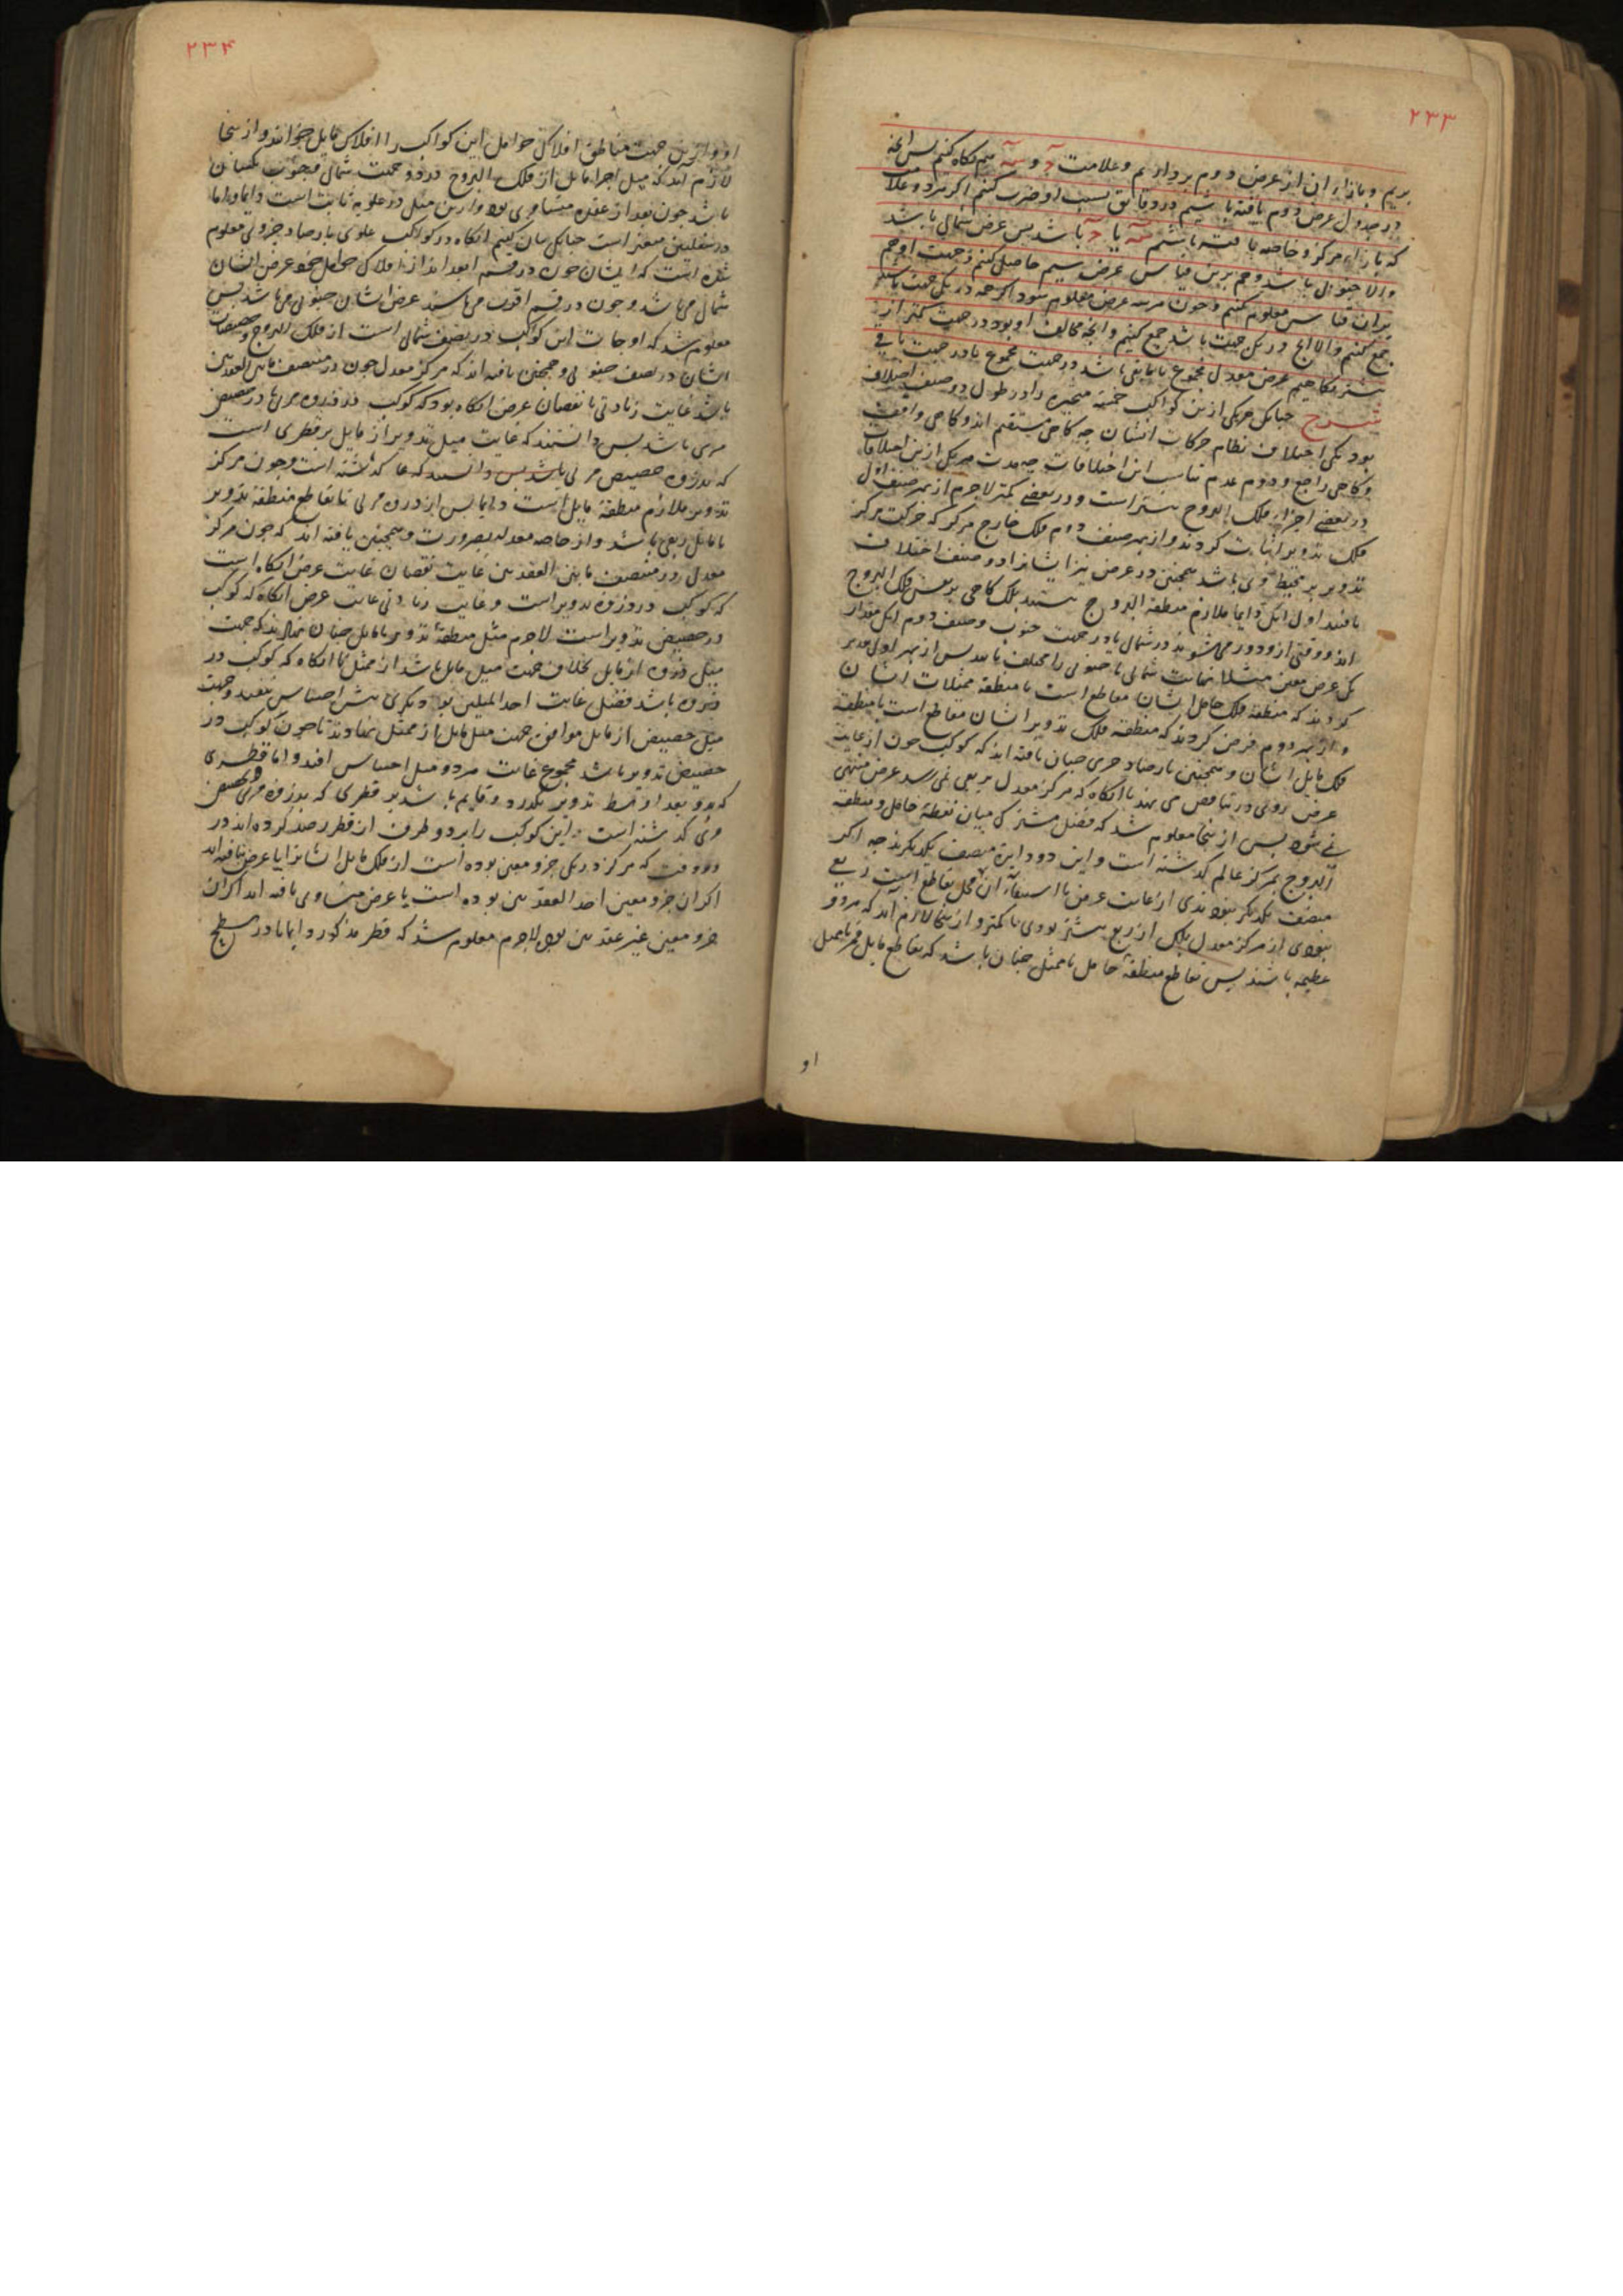 ۲۳۳
بریم و بازاء ان از عرض دوم برداریم و علامت و سیم نگاه کنیم پس انچه
در جدول عرض دوم یافته باشیم در دقایق نسبت او ضرب کنیم اگر مرکز و علامت
که بازاء مرکز و خاصه یافته باشیم یا باشد پس عرض شمالی باشد
والا جنوبی باشد و هم برین قیاس عرض سیم حاصل کنیم و جهت او هم
بران قیاس معلوم کنیم و چون هر سه عرض معلوم شود اگر همه در یک جهت باشند
جمع کنیم والا انچ در یک جهت باشد جمع کنیم و انچه مخالف او بود در جهت کمتر از
بیشتر بکاهیم عرض معدل مجموع یا باقی باشد در جهت مجموع یا در جهت باقی
شرح چنانک هر یکی ازین کواکب خمسه متحیره را در طول دو صنف اختلاف
بود یکی اختلاف نظام حرکات ایشان چه کاهی مستقیم اند و کاهی واقف
و کاهی راجع و دوم عدم تناسب این اختلافات چه مدت هر یکی ازین اختلافات
در بعضی اجزاء فلک البروج بیشتر است و در بعضی کمتر لاجرم از بهر صنف اول
فلک تدویر اثبات کردند و از بهر صنف دوم فلک خارج مرکز که حرکت مرکز
تدویر بر محیط وی باشد همچنین در عرض نیز ایشانرا دو صنف اختلاف
یافتند اول انک دایما ملازم منطقة البروج نیستند بلک کاهی بر نفس فلک البروج
اند و وقتی ازو دور می‌شوند در شمال یا در جهت جنوب و صنف دوم انک مقدار
یک عرض معین مثلا نهایت شمالی یا جنوبی را مختلف یافتند پس از بهر اول تقدیر
کردند که منطقهٔ فلک حامل ایشان مقاطع است با منطقه ممثلات ایشان
و از بهر دوم فرض کردند که منطقه فلک تدویر ایشان مقاطع است با منطقه
فلک مایل ایشان و همچنین بارصاد جزی چنان یافته اند که کوکب چون از غایت
عرض روی در تناقص می نهد تا انکاه که مرکز معدل بربعی نمی رسد عرض منتهی
نمی شود پس از ینجا معلوم شد که فصل مشترک میان نقطهٔ حامل و منطقه
البروج بمرکز عالم کذشته است و این دو دایره منصف یکدیکرند چه اکر
منصف یکدیکر نبودندی از غایت عرض تا استیفاء ان محل تقاطع است ربع
نبودی از مرکز معدل بلک از ربع بیشتر بودی یا کمتر و از ینجا لازم آید که هر دو
عظیمه باشند پس تقاطع منطقهٔ حامل با ممثل چنان باشد که تقاطع مایل قمر با ممثل
او
۲۳۴
او و ازین جهت مناطق افلاک حوامل این کواکب را افلاک مایل خوانند و از ینجا
لازم آید که میل اجزاء مایل از فلک البروج در دو جهت شمال و جنوب یکسان
باشد چون بعد از عقده متساوی بود و از این میل در علویه ثابت است دایما و اما
در سفلیین متغیر است چنانک بیان کنیم انکاه در کواکب علوی بارصاد جزوی معلوم
شده است که ایشان چون در قسم ابعد اند از افلاک حوامل خود عرض ایشان
شمالی می باشد و چون در قسم اقرب می باشند عرض ایشان جنوبی می باشد پس
معلوم شد که اوجات این کواکب در نصف شمالی است از فلک البروج و حضیضات
ایشان در نصف جنوبی و همچنین یافته اند که مرکز معدل چون در منتصف مابین العقدتین
باشد غایت زیادتی یا نقصان عرض انکاه بود که کوکب در ذروه مرئی یا در حضیض
مرئی باشد پس دانستند که غایت میل تدویر از مایل بر قطری است
که بذروه و حضیض مرئی باشد پس دانستند که عا کذشته است و چون مرکز
تدویر ملازم منطقهٔ مایل است دایما پس از ذروه مرئی تا تقاطع منطقهٔ تدویر
با مایل ربعی باشد و از خاصه معدله بضرورت و همچنین یافته اند که چون مرکز
معدل در منتصف مابین العقدتین غایت نقصان غایت عرض انکاه است
که کوکب در ذروه تدویر است و غایت زیادتی غایت عرض انکاه که کوکب
در حضیض تدویر است لاجرم میل منطقهٔ تدویر با مایل چنان نهادند که جهت
میل ذروه از مایل بخلاف جهت میل مایل باشد از ممثل تا انکاه که کوکب در
ذروه باشد فضل غایت احد المیلین بود دیکری بیش احساس نیفتد و جهت
میل حضیض از مایل موافق جهت میل مایل از ممثل نهادند تا چون کوکب در
حضیض تدویر باشد مجموع غایت هر دو میل احساس افتد و اما قطری
که بدو بعد اوسط تدویر بکذرد و قایم باشد بر قطری که بذروه و حضیض مرئی
وی کذشته است و این کوکب را بر دو طرف ان قطر رصد کرده اند در
دو وقت که مرکز در یک جزو معین بوده است از فلک مایل ایشانرا یا عرض نیافته اند
اکر ان جزو معین احد العقدتین بوده است یا عرض متساوی یافته اند اکر ان
جزو معین غیر عقدتین بود لاجرم معلوم شد که قطر مذکور دایما یا در سطح